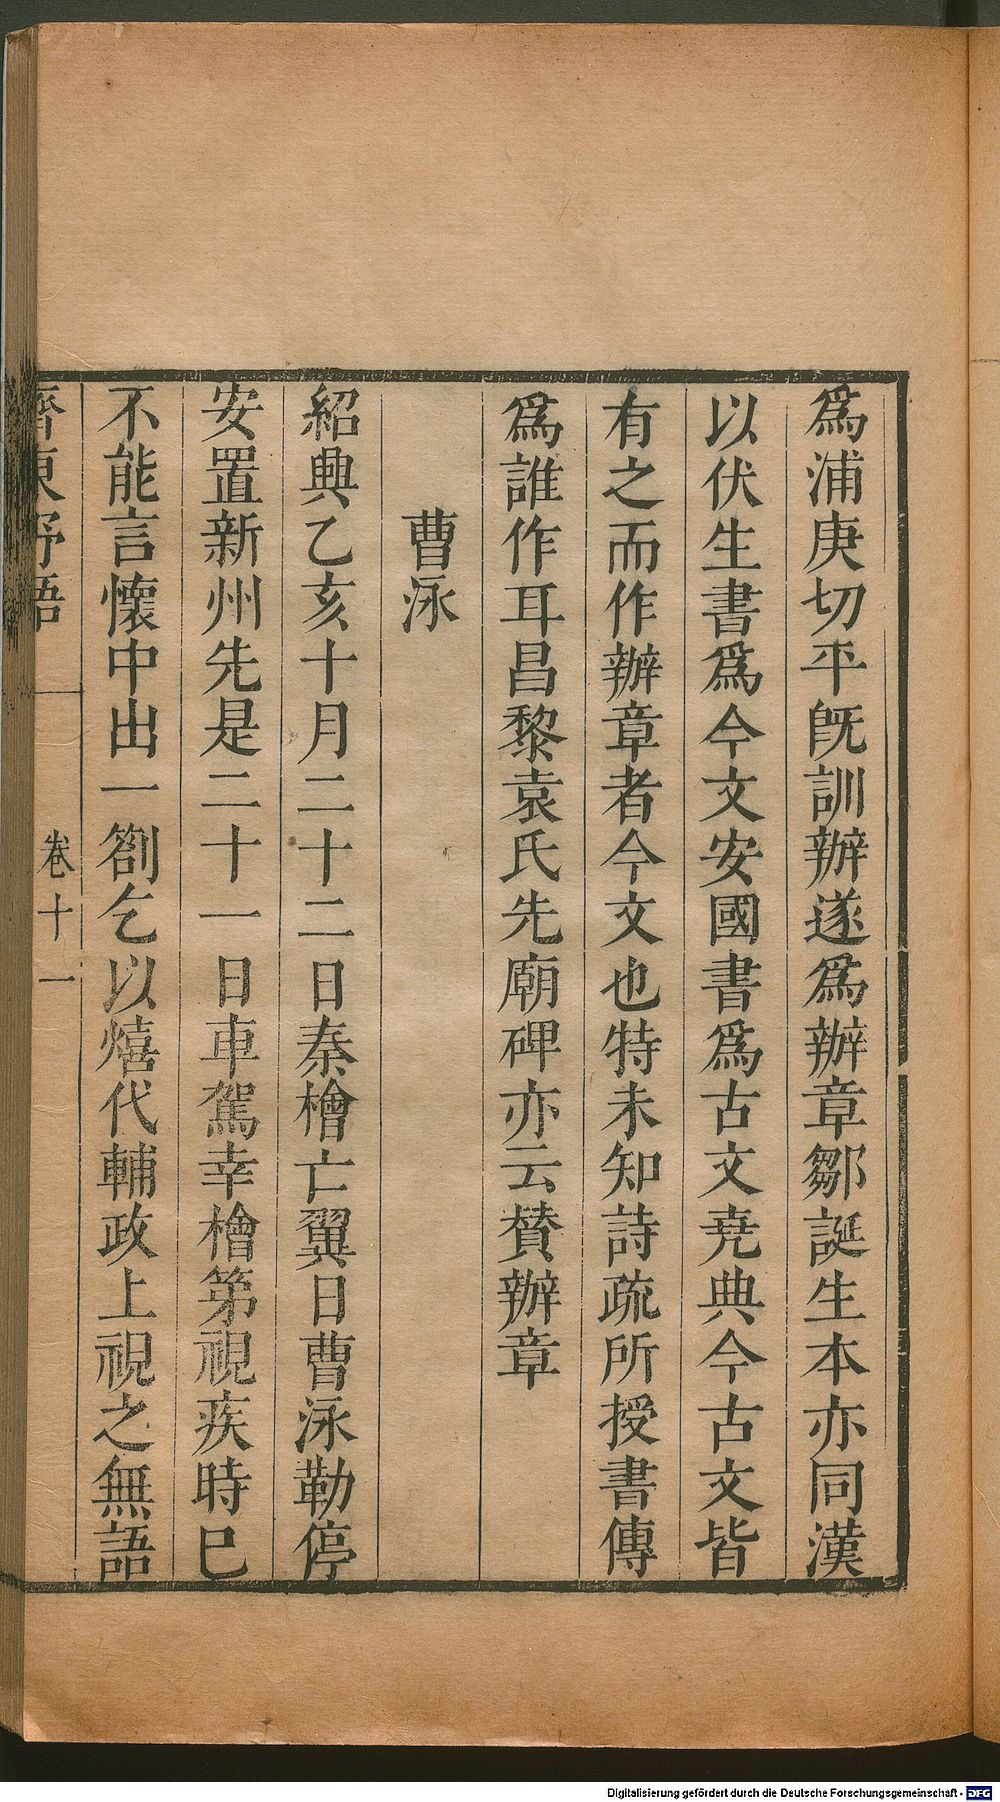 爲浦庚切平旣訓辦遂爲辦章鄒誕生本亦同漢
以伏生書爲今文安國書爲古文堯典今古文皆
有之而作辦章者今文也特未知詩疏所授書傳
爲誰作耳昌黎袁氏先廟碑亦云贊辦章
曹泳
紹興乙亥十月二十二日秦檜亡翼日曹泳勒停
安置新州先是二十一日車駕幸檜第視疾時已
不能言懷中出一劄乞以熺代輔政上視之無語
齊東野語 卷十一
Digitalisierung gefördert durch die Deutsche Forschungsgemeinschaft - DFG